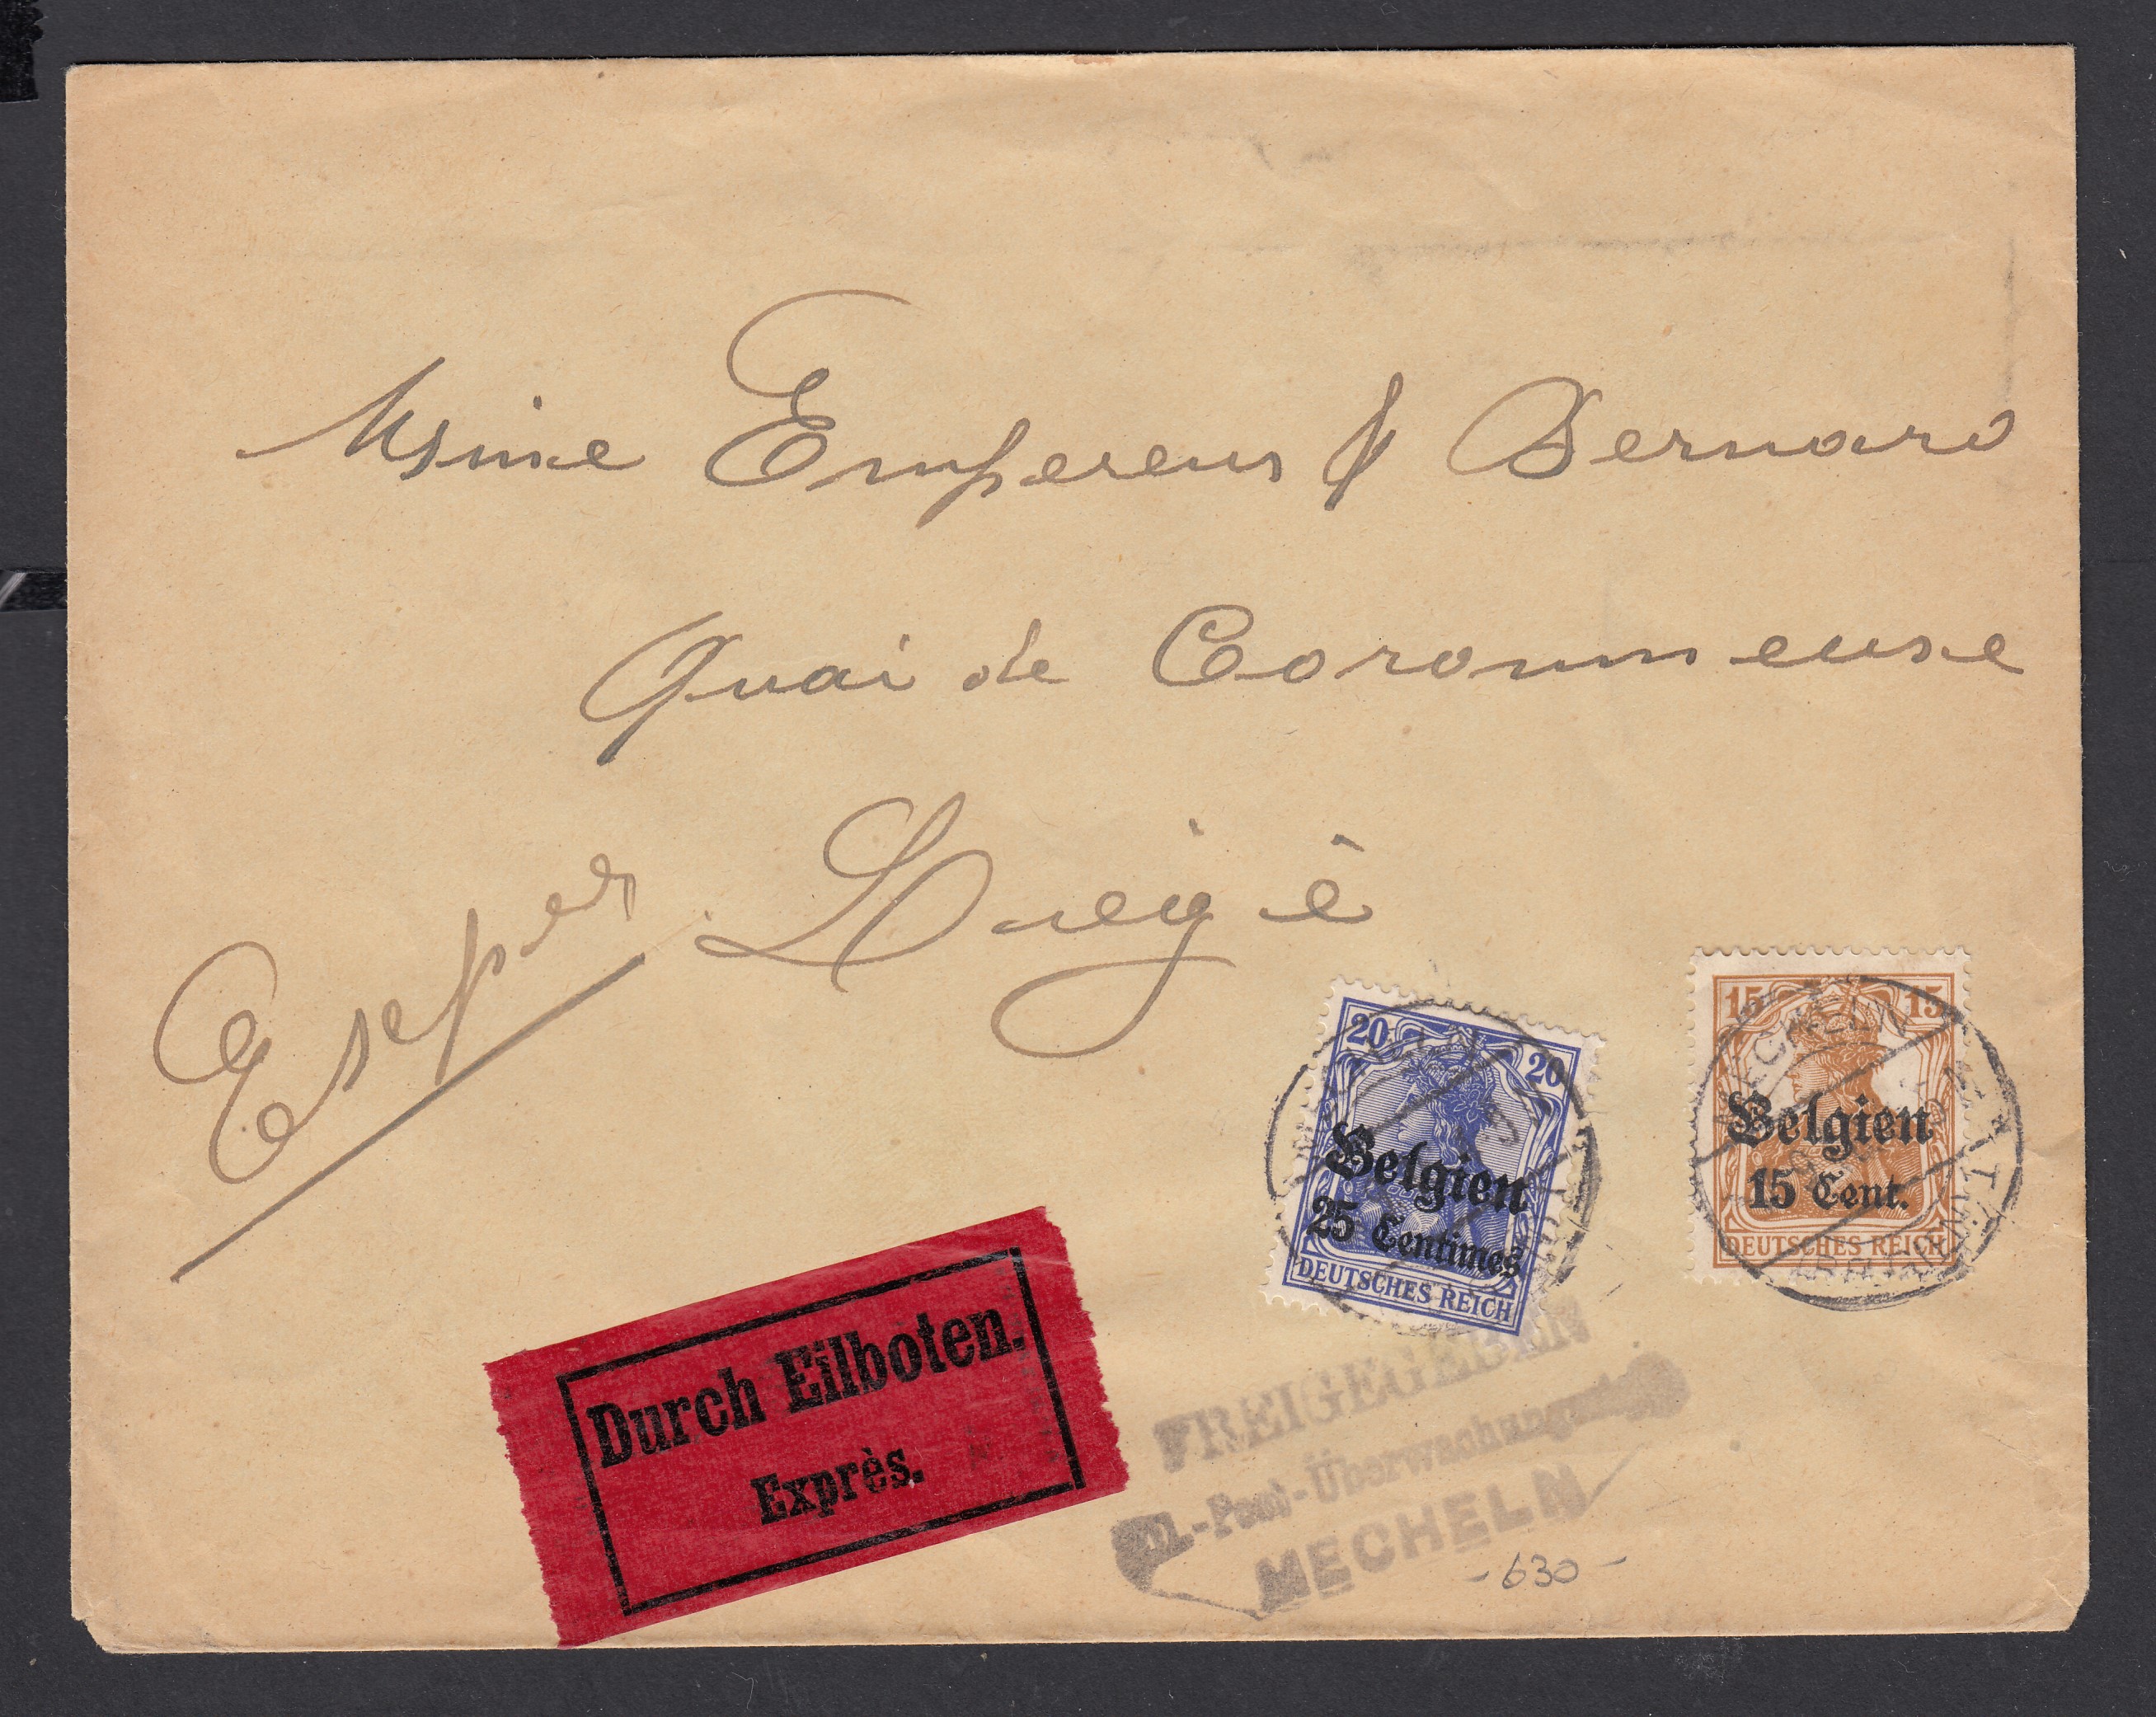 Usine Empereur & Bernard
Quai de Coronmeuse
Liège
Expres
20 20
Belgien
25 Centimes
DEUTSCHES REICH
15 15
MECHELN
Belgien
15 Cent.
DEUTSCHES REICH
Durch Eilboten.
Exprès.
FREIGEGEBEN
-Post-Überwachungsstelle
MECHELN
-630-